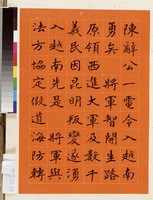 陳辭公 電令入越南
勇矣 將軍智開生路
原領西進大軍及數千
義民因昆明叛變遂湧
入越南先是 將軍與
法方協定假道海防轉